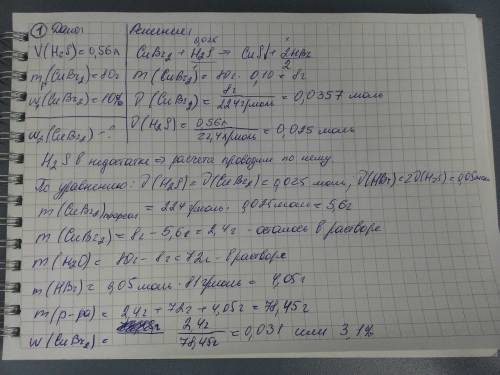 ① Дано: Решение:
V(H₂S)=0,56л 0,025 CuBr₂ + H₂S → CuS↓ + 2HBr
1 2
m₁(CuBr₂)=80г m(CuBr₂)=80г · 0,10 = 8г
w₁(CuBr₂)=10% ν(CuBr₂)= 8г / 224г/моль = 0,0357 моль
w₂(CuBr₂) - ? ν(H₂S)= 0,56л / 22,4л/моль = 0,025 моль
H₂S в недостатке ⇒ расчета проводим по нему.
По уравнению: ν(H₂S)=ν(CuBr₂)=0,025 моль, ν(HBr)=2ν(H₂S)=0,05моль
m(CuBr₂) = 224г/моль · 0,025моль = 5,6г
m(CuBr₂)=8г - 5,6г = 2,4г - осталось в растворе
m(H₂O) = 80г - 8г = 72г - в растворе
m(HBr)= 0,05моль · 81г/моль = 4,05г
m(р-ра) = 2,4г + 72г + 4,05г = 78,45г
w(CuBr₂) = 2,4г / 78,45г = 0,031 или 3,1%